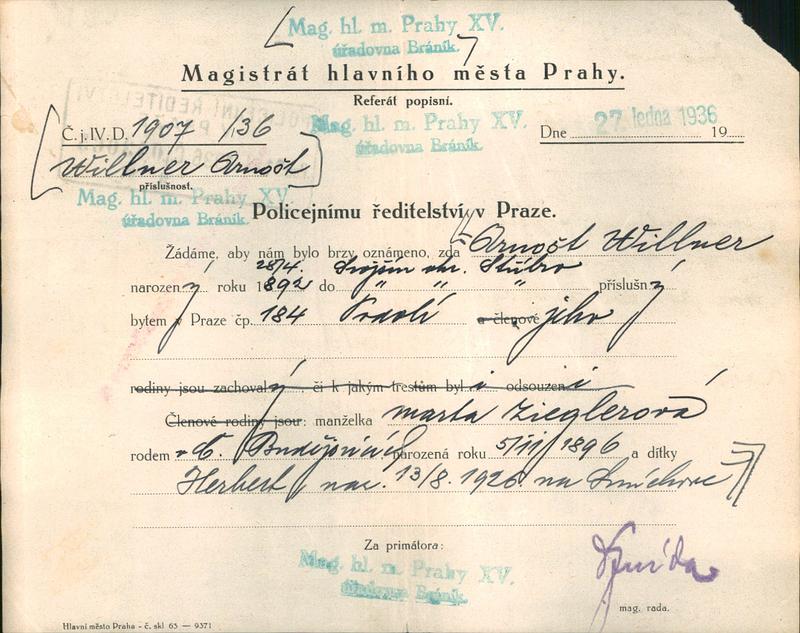 Mag. hl. m. Prahy XV.
úřadovna Bráník.
Magistrát hlavního města Prahy.
Referát popisní.
Č. j. IV. D. 1907 /36
Mag. hl. m. Prahy XV.
úřadovna Bráník.
Dne 27. ledna 1936 19
Willner Arnošt
příslušnost.
Mag. hl. m. Prahy XV.
úřadovna Bráník.
Policejnímu ředitelství v Praze.
Žádáme, aby nám bylo brzy oznámeno, zda Arnošt Willner
28/4. Stříbro
narozený roku 1892 do " " " příslušný
bytem v Praze čp. 184 Podolí a členové jeho
rodiny jsou zachovalý, či k jakým trestům byli odsouzeni
Členové rodiny jsou: manželka Marta Zieglerová
rodem v Č. Budějovicích narozená roku 5/11 1896 a dítky
Herbert, nar. 13/8. 1926 na Smíchově
Za primátora:
Mag. hl. m. Prahy XV.
úřadovna Bráník.
mag. rada.
Hlavní město Praha - č. skl 65 — 9371